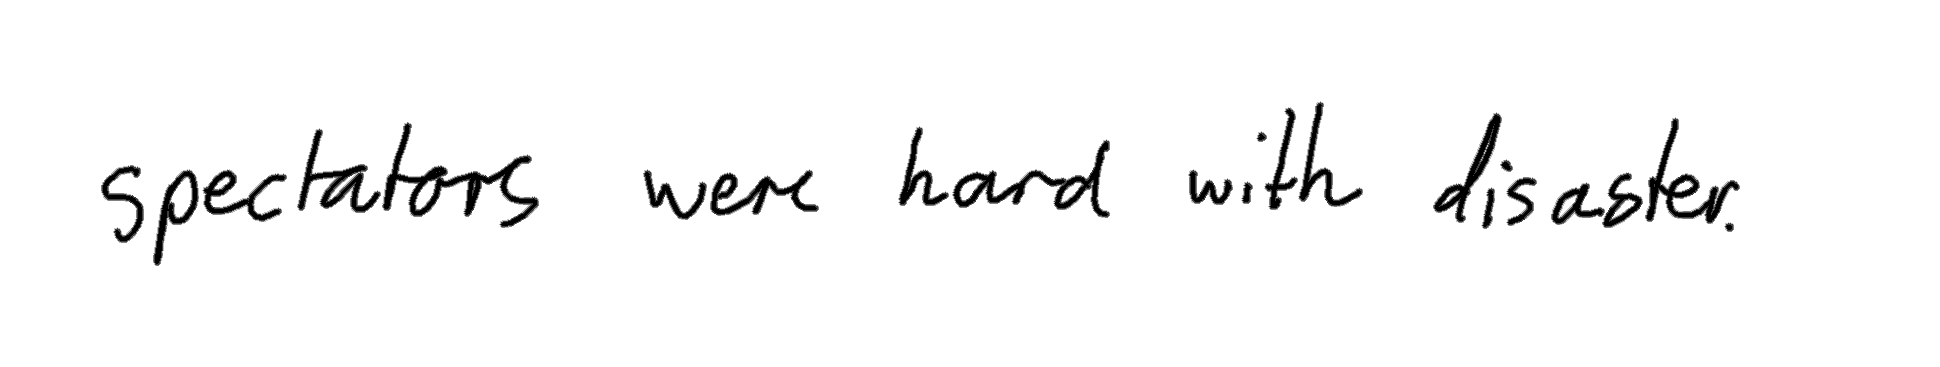 spectators were hard with disaster.